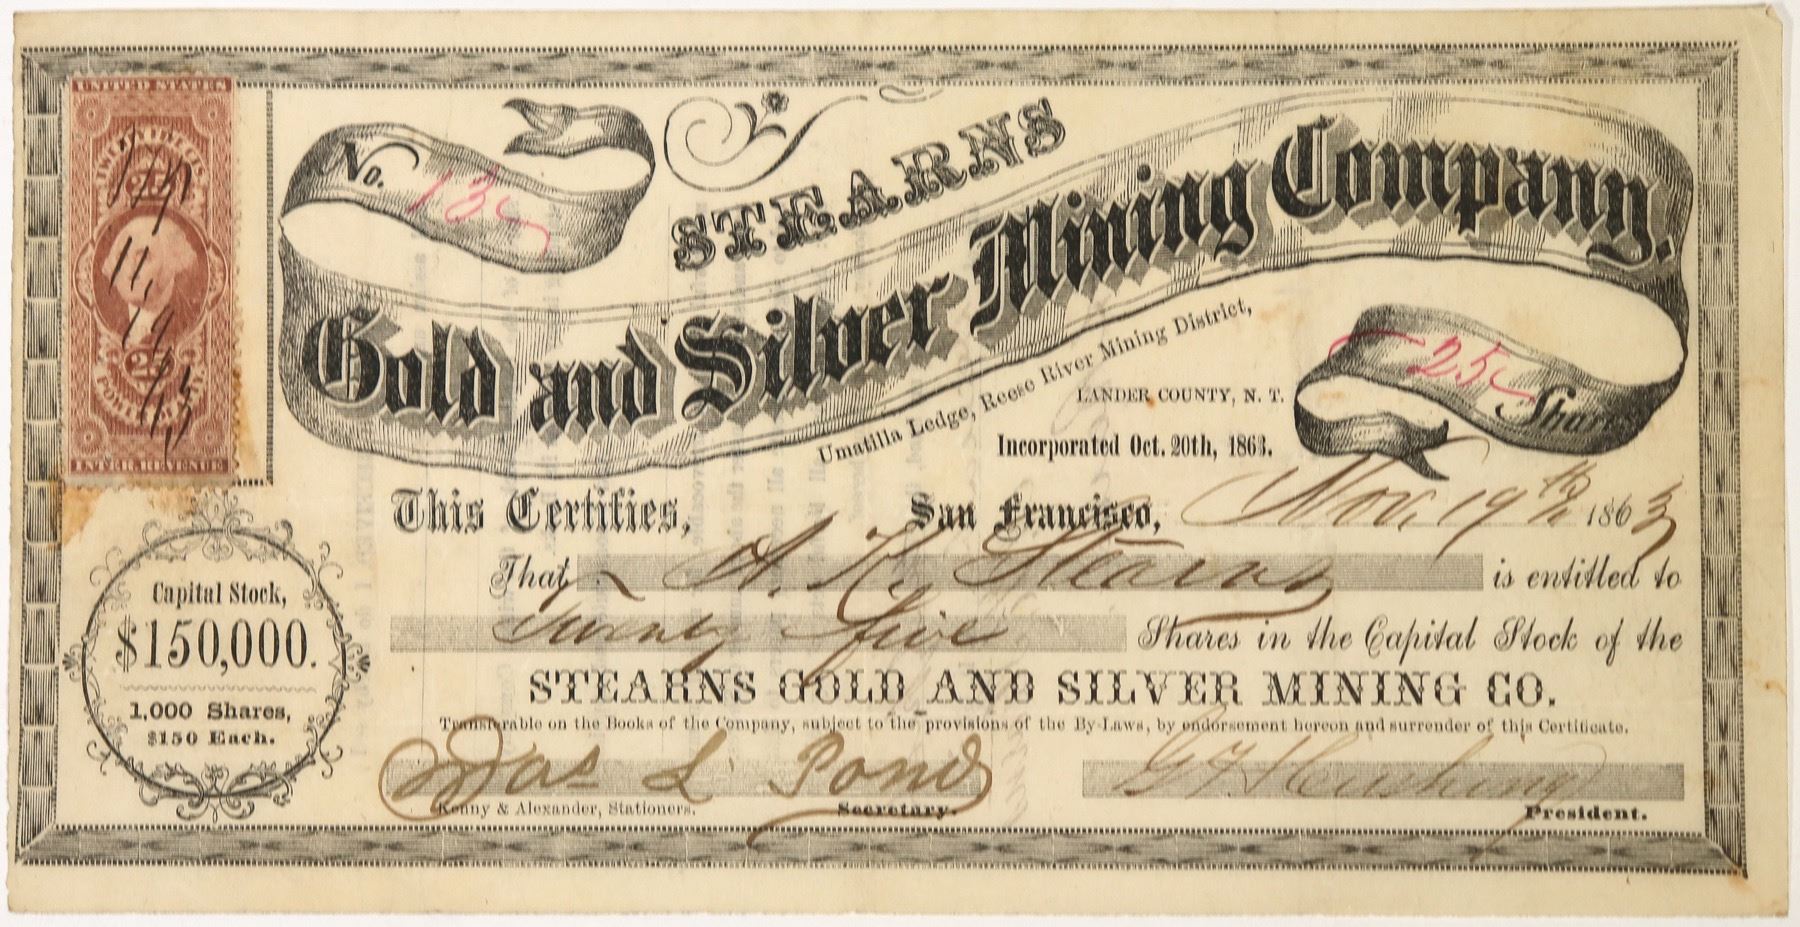 UNITED STATES
INTER. REVENUE
25
POWER OF ATTY
11,
19
63
No. 13
STEARNS
Gold and Silver Mining Company.
Umatilla Ledge, Reese River Mining District,
LANDER COUNTY, N. T.
Incorporated Oct. 20th, 1863.
25 Shares
This Certifies, San Francisco, Nov. 19th 1863
That A. K. Stearns is entitled to
Twenty five Shares in the Capital Stock of the
STEARNS GOLD AND SILVER MINING CO.
Transferable on the Books of the Company, subject to the provisions of the By-Laws, by endorsement hereon and surrender of this Certificate.
Capital Stock,
$150,000.
1,000 Shares,
$150 Each.
Jas L Pond
Kenny & Alexander, Stationers.
Secretary.
President.